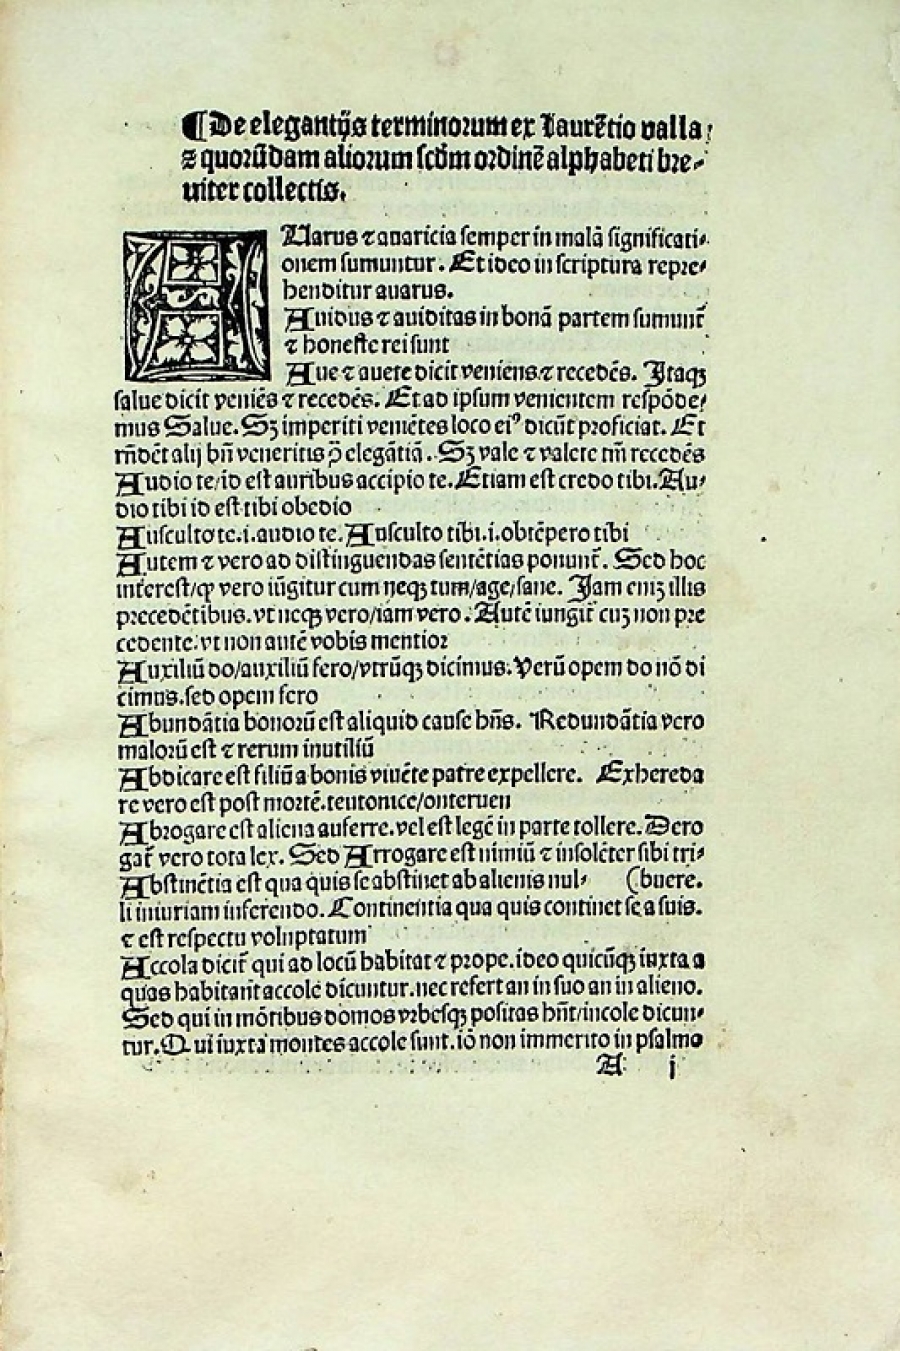 ¶De elegantijs terminorum ex Laurētio valla
⁊ quorūdam aliorum scdm̄ ordinē alphabeti bre⸗
uiter collectis.
AUarus ⁊ auaricia semper in malā significati⸗
onem sumuntur. Et ideo in scriptura repre⸗
henditur auarus.
Auidus ⁊ auiditas in bonā partem sumunt̄
⁊ honeste rei sunt
Aue ⁊ auete dicit veniens ⁊ recedēs. Itaqꝫ
salue dicit veniēs ⁊ recedēs. Et ad ipsum venientem respōde⸗
mus Salue. Sꝫ imperiti veniētes loco eiꝰ dicūt proficiat. Et
rn̄dēt alij bn̄ veneritis ꝑ̄ elegātiā. Sꝫ vale ⁊ valete tm̄ recedēs
Audio te/id est auribus accipio te. Etiam est credo tibi. Au⸗
dio tibi id est tibi obedio
Ausculto te.i.audio te. Ausculto tibi.i.obtēpero tibi
Autem ⁊ vero ad distinguendas sentētias ponunt̄. Sed hoc
interest/ꝙ vero iūgitur cum neqꝫ tum/age/sane. Jam eniꝫ illis
precedētibus.vt neqꝫ vero/iam vero. Autē iungit̄ cuꝫ non pre
cedente.vt non autē vobis mentior
Auxiliū do/auxiliū fero/vtrūqꝫ dicimus. Verū opem do nō di
cimus.sed opem fero
Abundātia bonorū est aliquid cause bn̄s. Redundātia vero
malorū est ⁊ rerum inutiliū
Abdicare est filiū a bonis viuēte patre expellere. Exhereda
re vero est post mortē.teutonice/onteruen
Abrogare est aliena auferre.vel est legē in parte tollere. Dero
gat̄ vero tota lex. Sed Arrogare est nimiū ⁊ insolēter sibi tri⸗
Abstinētia est qua quis se abstinet ab alienis nul⸗ (buere.
li iniuriam inferendo. Continentia qua quis continet se a suis.
⁊ est respectu voluptatum
Accola dicit̄ qui ad locū habitat ⁊ prope.ideo quicūqꝫ iuxta a
quas habitant accole dicuntur.nec refert an in suo an in alieno.
Sed qui in mōtibus domos vrbesqꝫ positas hn̄t/incole dicun⸗
tur. Qui iuxta montes accole sunt.iō non immerito in psalmo
A j